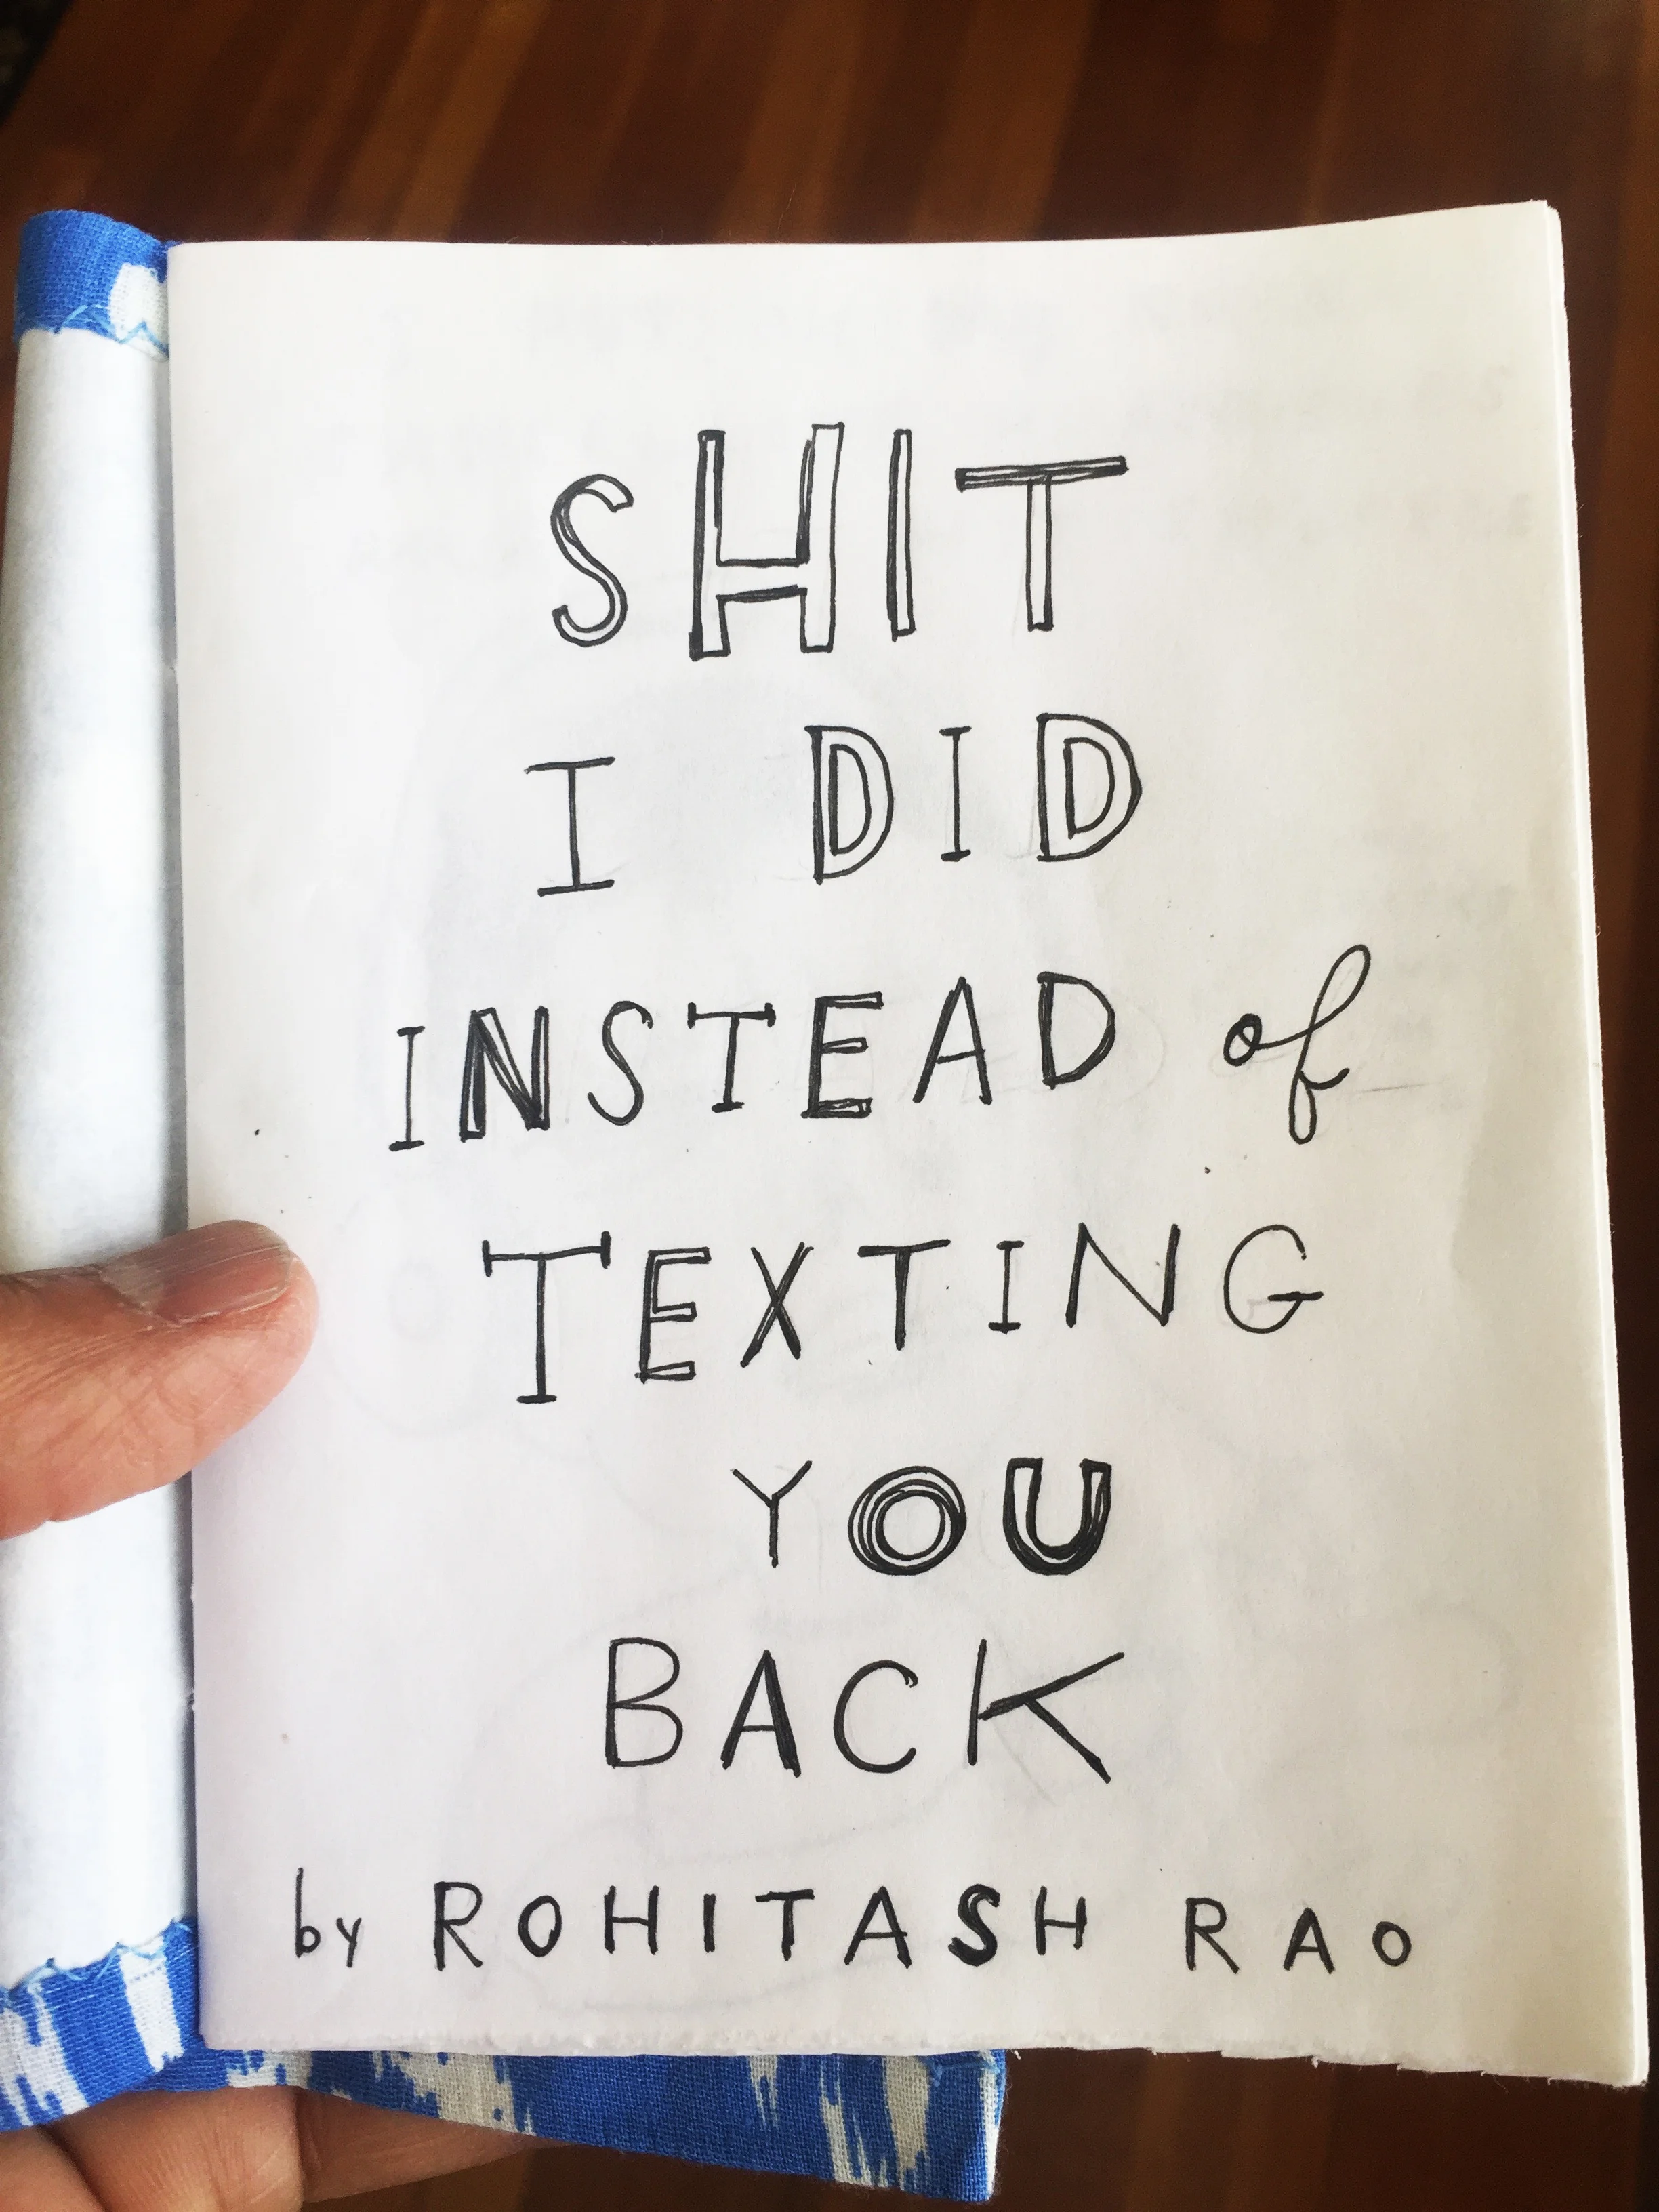 SHIT
I DID
INSTEAD of
TEXTING
YOU
BACK
by ROHITASH RAO